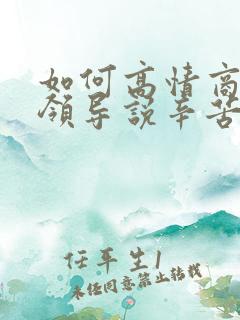 如何高情商
领导说辛苦
任平生1
未经同意禁止转载